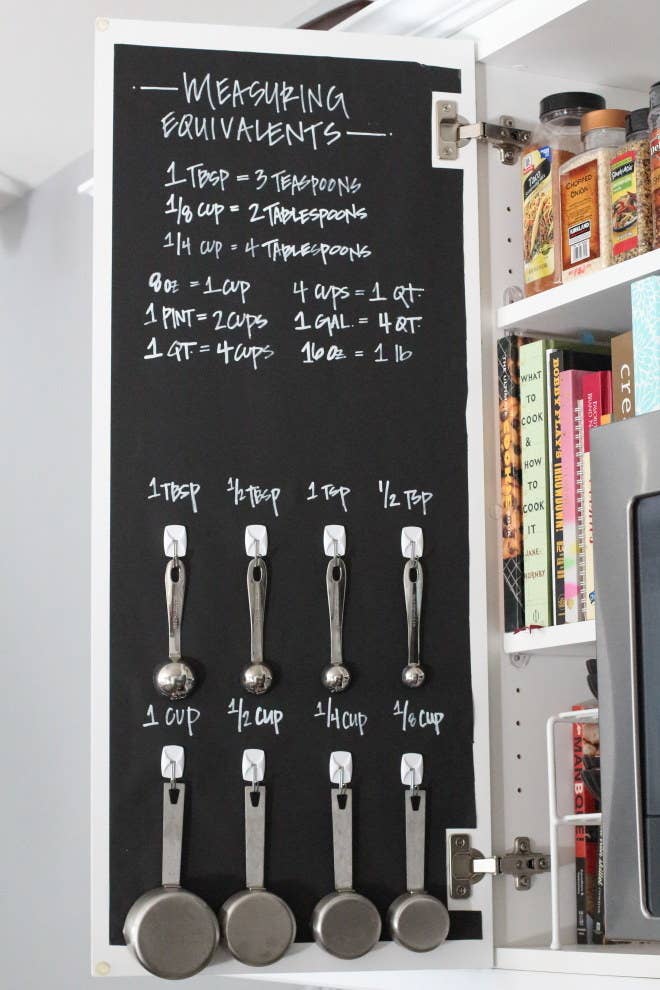 MEASURING
EQUIVALENTS
1 TBSP = 3 TEASPOONS
1/8 CUP = 2 TABLESPOONS
1/4 CUP = 4 TABLESPOONS
8oz = 1 CUP
1 PINT = 2 CUPS
1 QT. = 4 CUPS
4 CUPS = 1 QT.
1 GAL. = 4 QT.
16oz = 1 lb
1 TBSP 1/2 TBSP 1 TSP 1/2 TSP
1 CUP 1/2 CUP 1/4 CUP 1/8 CUP
Taco
CHOPPED
ONION
KIRKLAND
WHAT
TO
COOK
&
HOW
TO
COOK
IT
JANE
HORNBY
BOBBY FLAY'S THROWDOWN!
cre